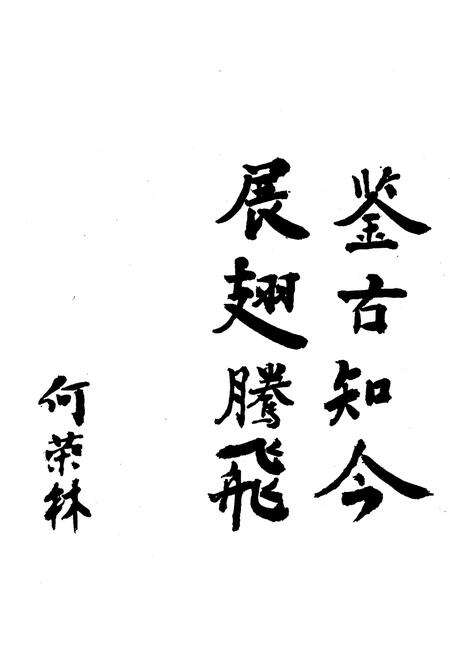 鉴古知今
展翅騰飛
何荣林